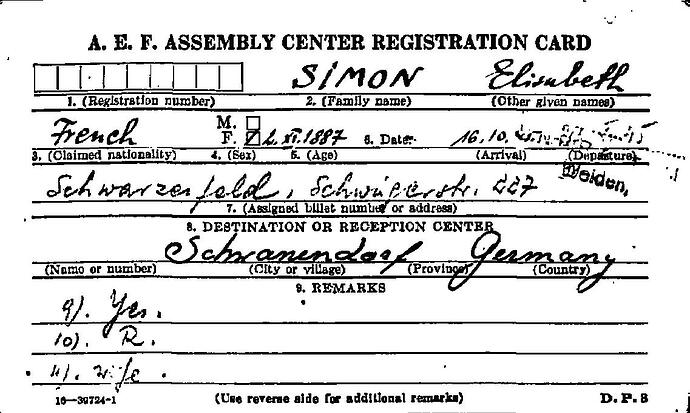 A. E. F. ASSEMBLY CENTER REGISTRATION CARD
SIMON Elisabeth
1. (Registration number) 2. (Family name) (Other given names)
M.
French F. 2. XI. 1887 6. Date: 16.10.
3. (Claimed nationality) 4. (Sex) 5. (Age) (Arrival) (Departure)
Schwarzenfeld, 227 Weiden,
7. (Assigned billet number or address)
8. DESTINATION OR RECEPTION CENTER
Schwanendorf Germany
(Name or number) (City or village) (Province) (Country)
9. REMARKS
9). Yes.
10). R.
11). wife.
16—39724-1 (Use reverse side for additional remarks) D. P. 3